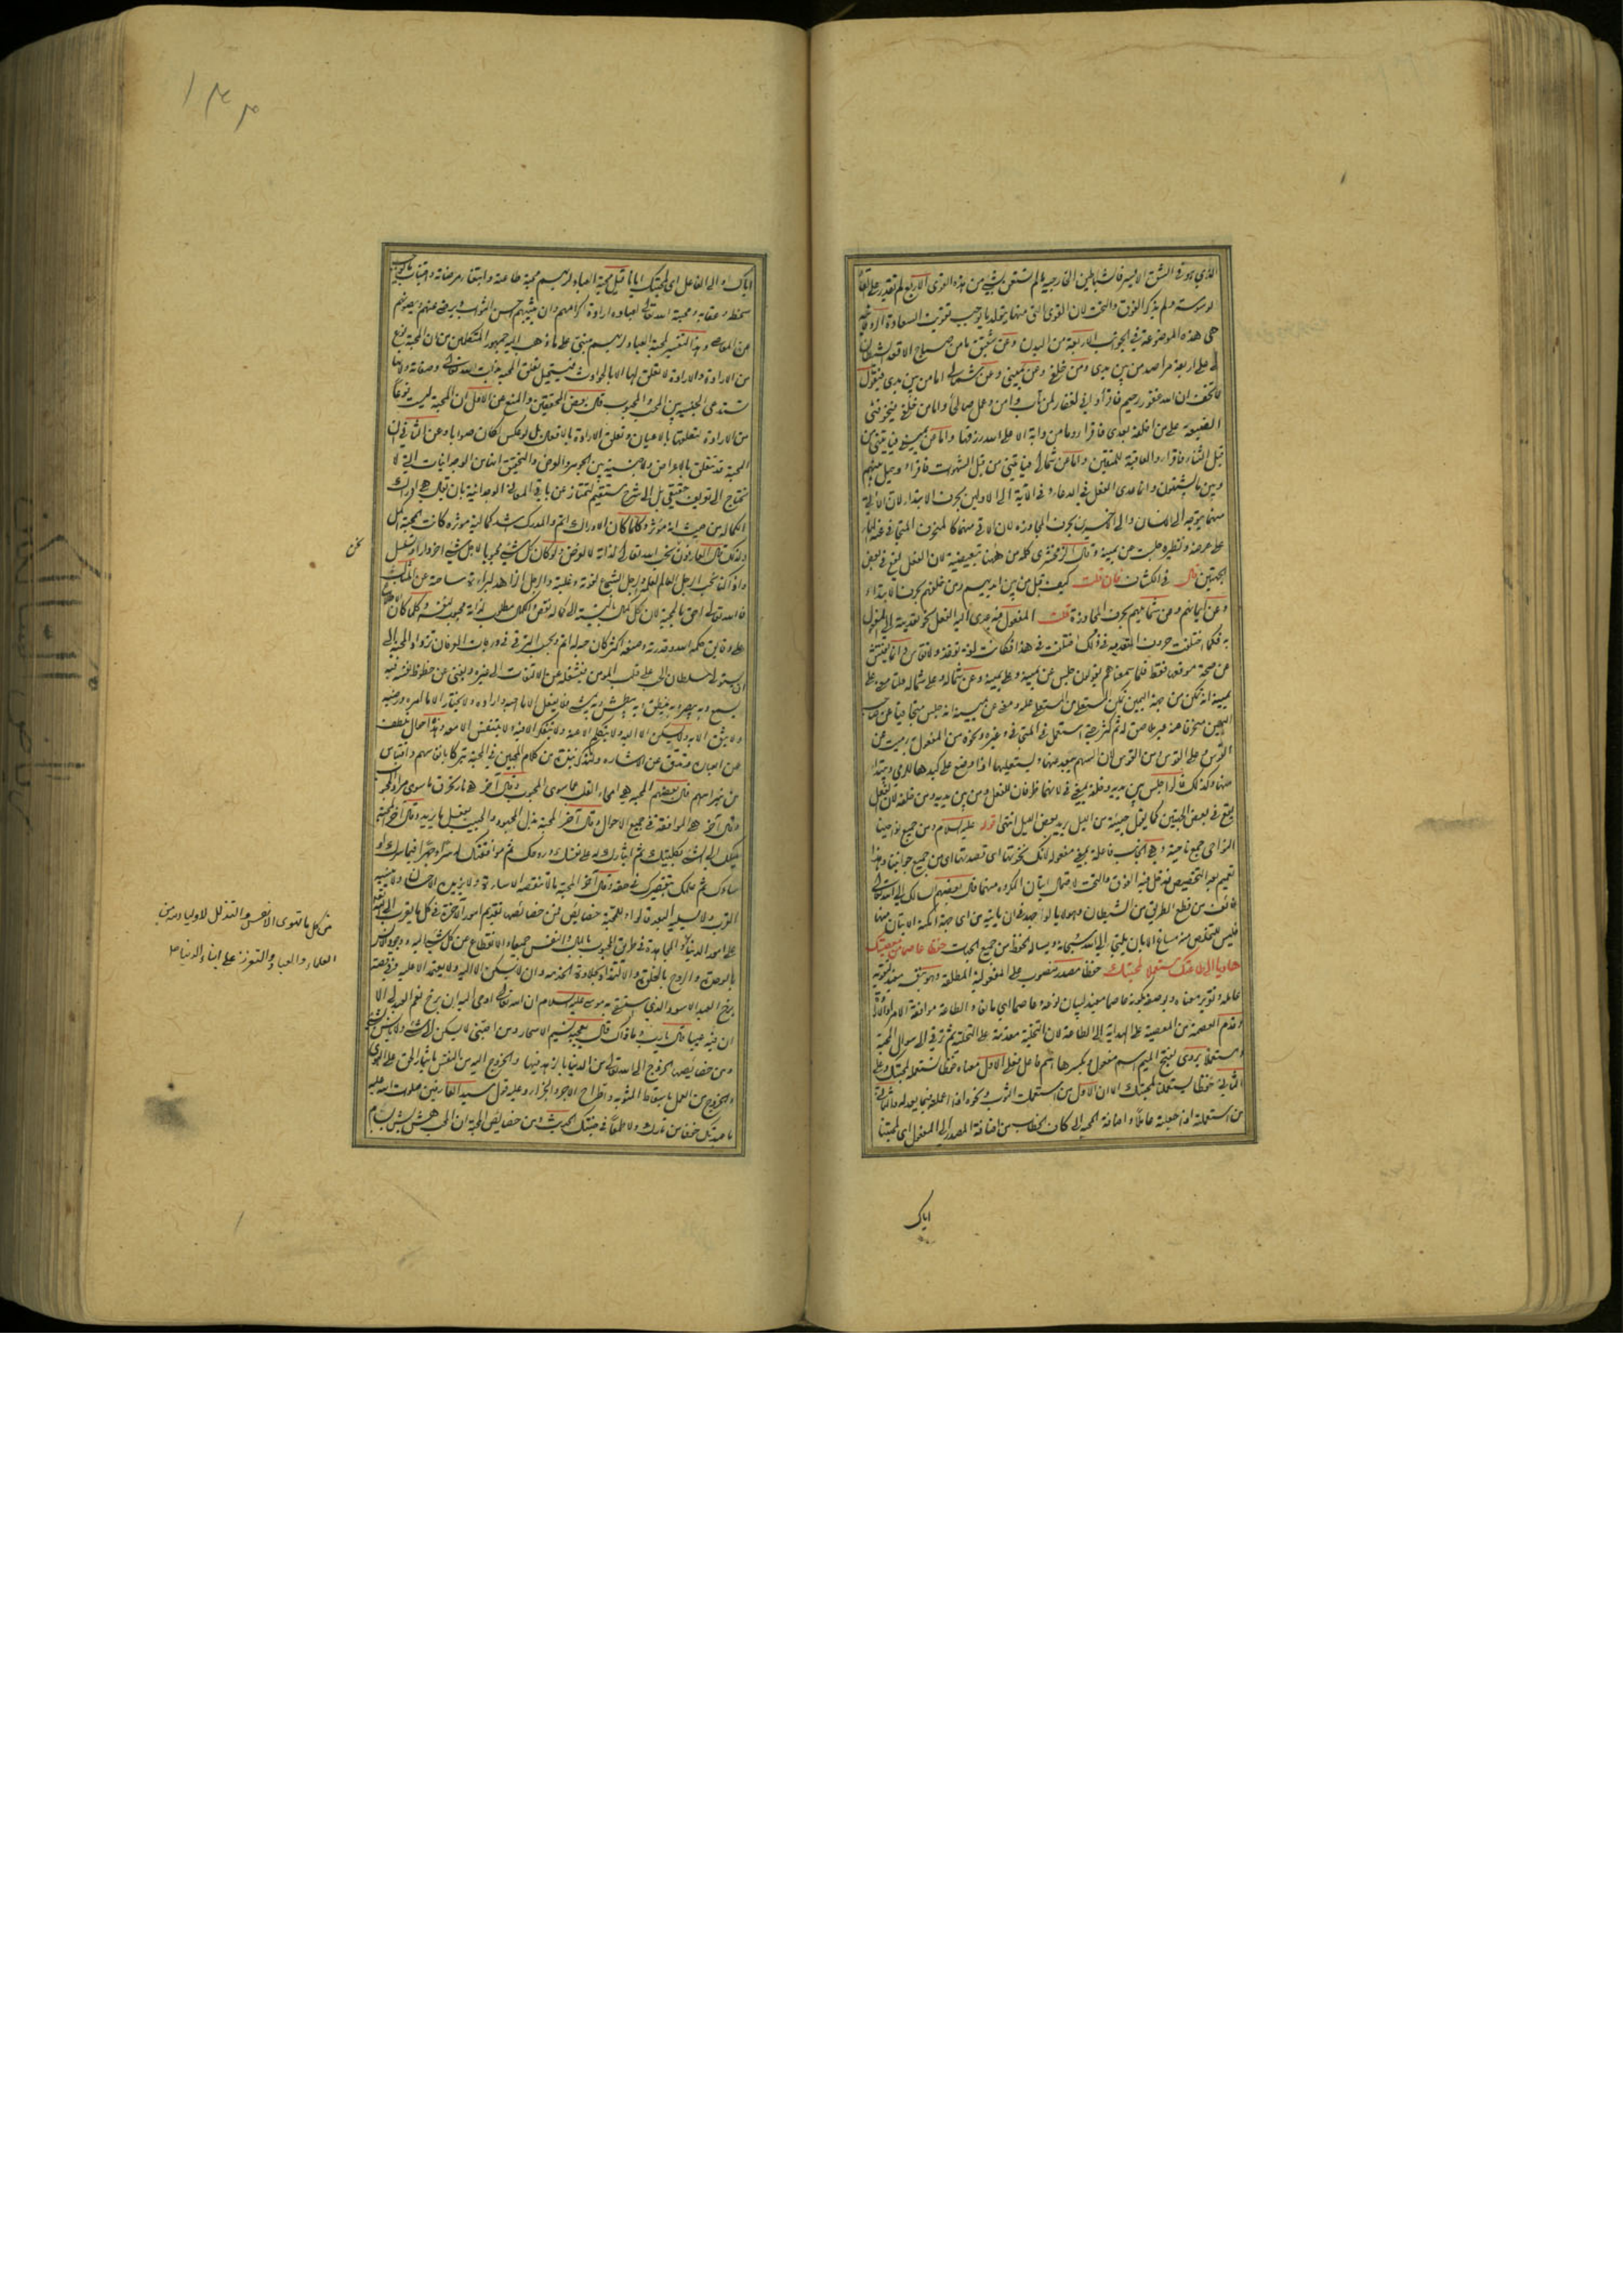 الذي هو في الشق الايسر فالشياطين الخارجية ما لم تستعن بشيء من هذه القوى الاربع لم تقدر على القاء
الوسوسة ولم يذكر الفوق والتحت لان القوى التي منها يتولد ما يوجب تفويت السعادة الروحانية
هي هذه الموضوعة في الجوانب الاربعة من البدن وعن شقيق ما من صباح الا قعد الشيطان
لي على اربعة مراصد من بين يدي ومن خلفي وعن يميني وعن شمالي اما من بين يدي فيقول
لا تخف ان الله غفور رحيم فاقرأ واني لغفار لمن تاب وامن وعمل صالحا واما من خلفي فيخوفني
الضيعة على من اخلفه بعدي فاقرأ وما من دابة الا على الله رزقها واما من يميني فيأتيني من
قبل الثناء فاقرأ والعاقبة للمتقين واما من شمالي فيأتيني من قبل الشهوات فاقرأ وحيل بينهم
وبين ما يشتهون وانما عدى الفعل في الدعاء وفي الآية الى الاولين بحرف الابتداء لان الآتي
منهما متوجه الى الانسان والى الاخيرين بحرف المجاوزة لان الآتي منهما كالمنحرف المتجافي عنه المار
على عرضه ونظيره جلست عن يمينه وقال الزمخشري كلمة من ههنا تبعيضية لان الفعل يقع في بعض
الجهتين قال في الكشاف فان قلت كيف قيل من بين ايديهم ومن خلفهم بحرف الابتداء
وعن ايمانهم وعن شمائلهم بحرف المجاوزة قلت المفعول فيه عدى اليه الفعل نحو تعديته الى المفعول
به فكما اختلفت حروف التعدية في ذاك اختلفت في هذا وكانت لغة تؤخذ ولا تقاس وانما يفتش
عن صحة موقعها فقط فلما سمعناهم يقولون جلس عن يمينه وعلى يمينه وعن شماله وعلى شماله قلنا معنى على
يمينه انه تمكن من جهة اليمين تمكن المستعلي من المستعلى عليه ومعنى عن يمينه انه جلس متجافيا عن صاحب
اليمين منحرفا عنه غير ملاصق له ثم كثر حتى استعمل في المتجافي وغيره ونحوه من المفعول به رميت عن
القوس وعلى القوس ومن القوس لان السهم يبعد عنها ويستعليها اذا وضع على كبدها للرمي ويبتدأ
منها وكذلك قالوا جلس بين يديه وخلفه بمعنى في لانهما ظرفان للفعل ومن بين يديه ومن خلفه لان الفعل
يقع في بعض الجهتين كما يقال جئته من الليل يريد بعض الليل انتهى قوله عليه السلام ومن جميع نواحينا
النواحي جمع ناحية وهي الجانب فاعلة بمعنى مفعولة لانك نحوتها اي قصدتها اي من جميع جوانبنا وهذا
تعميم بعد التخصيص فدخل فيه الفوق والتحت لاحتمال اتيان المكروه منهما قال بعضهم السالك الى الله تعالى
خائف من قطع الطريق من الشيطان
فليس للتخلص منه مساغ الا بان يلتجئ الى الله سبحانه ويسأله الحفظ من جميع الجهات حفظا عاصما من معصيتك
هاديا الى طاعتك مستعملا لمحبتك حفظا مصدر منصوب على المفعولية المطلقة
عامله وتقرير معناه وبوصفه بكونه عاصما مفيد لبيان نوعه وعاصما اي مانعا والطاعة موافقة الامر
وتقديم العصمة من المعصية على الهداية الى الطاعة لان التخلية مقدمة على التحلية ثم ترقى الى سؤال المحبة
ومستعملا يروى بفتح الميم اسم مفعول وبكسرها اسم فاعل فعلى الاول معناه حفظا تستعمله لمحبتك وعلى
الثاني حفظا يستعملنا لمحبتك الا ان الاول من استعملت الثوب ونحوه اذا اعملته فيما يعد له والثاني
من استعملته اذا جعلته عاملا واضافة المحبة الى كاف الخطاب من اضافة المصدر الى المفعول اي لمحبتنا
اياك
اياك او الى الفاعل اي لمحبتك ايانا قيل محبة العباد لربهم محبة طاعته وابتغاء مرضاته واجتناب ما يوجب
سخطه وعقابه ومحبة الله تعالى لعباده ارادة اكرامهم وان يثيبهم احسن الثواب ويرضى عنهم ويصونهم
عن المعاصي وهذا التفسير لمحبة العباد لربهم مبني على ما ذهب اليه جمهور المتكلمين من ان المحبة نوع
من الارادة والارادة لا تعلق لها الا بالحوادث فيستحيل تعلق المحبة بذات الله تعالى وصفاته ولانها
تستدعي الجنسية بين المحب والمحبوب قال بعض المحققين والمنع عن الاول ان المحبة ليست نوعا
من الارادة بتعلقها بالاعيان وتعلق الارادة بالافعال بل لو عكس لكان صوابا وعن الثاني ان
المحبة قد تتعلق بالاعراض ولا جنسية بين الجوهر والعرض والتحقيق انها من الوجدانيات التي لا
تحتاج الى تعريف حقيقي بل الى شرح مستقيم لتمتاز عن باقي المعاني الوجدانية بان يقال هي ادراك
الكمال من حيث انه مؤثر وكلما كان الادراك اتم والمدرك اشد كمالية مؤثرة كانت المحبة اكمل
ولذلك قال العارفون نحب الله تعالى لذاته لا لغرض ولو كان كل شيء محبوبا لاجل شيء اخر دار او تسلسل
واذا كنا نحب الرجل العالم لعلمه والرجل الشجاع لقوته وغلبته والرجل الزاهد لبراءة ساحته عن المثالب
فالله تعالى احق بالمحبة لان كل كمال بالنسبة الى كماله نقص والكمال مطلوب لذاته محبوب لنفسه وكلما كان الاطلاع
على دقايق حكمة الله وقدرته وصنعه اكثر كان حبه له اتم وبحسب الترقي في درجات العرفان تزداد المحبة الى
ان يستولي سلطان الحب على قلب المؤمن فيشغله عن الالتفات الى غيره ويفنى عن حظوظ نفسه فبه
يسمع وبه يبصر وبه ينطق وبه يبطش وبه يمشي فلا يفعل الا ما احبه واراده ولا يختار الا ما امره ورضيه
ولا يثق الا به ولا يسكن الا اليه ولا يتكلم الا عنه ولا يتفكر الا فيه ولا يتنفس الا معه وهذا حال تلطف
عن العبارة وتدق عن الاشارة ولنذكر نبذة من كلام المحبين في المحبة تبركا بانفاسهم واقتباسا
من نبراسهم قال بعضهم المحبة هي امحاء القلب عما سوى المحبوب وقال آخر هي نار تحرق ما سوى مراد المحبوب
وقال آخر هي الموافقة في جميع الاحوال وقال آخر المحبة بذل المجهود والحبيب يفعل ما يريد وقال آخر المحبة
ميلك الى الشيء بكليتك ثم ايثارك له على نفسك وروحك ثم موافقتك له سرا وجهرا فيما سرك او
ساءك ثم علمك بتقصيرك في حقه وقال آخر المحبة ما لا تنقصه الاساءة ولا يزيده الاحسان
القرب ولا يسليه البعد قالوا وللمحبة خصائص فمن خصائصها تقديم امور الآخرة في كل ما يقرب الى الحبيب
على امور الدنيا والمجاهدة في طريق المحبوب بالمال والنفس جميعا والانقطاع عن كل شيء اليه ووجود الانس
بالوحدة والروح بالخلوة والالتذاذ بحلاوة الخدمة وان لا يسكن الا اليه ولا يعتمد الا عليه وفي قصة
برخ العبد الاسود الذي استسقى به موسى عليه السلام ان الله تعالى اوحى اليه ان برخ نعم العبد لي الا
ان فيه عيبا قال يا رب وما ذاك قال يعجبه نسيم الاسحار ومن احبني لا يسكن الى شيء ولا يأنس بشيء
ومن خصائصها الخروج الى الله تعالى من الدنيا بالزهد فيها والخروج اليه من النفس بايثار الحق على الهوى
والخروج من العمل باسقاط المثوبة واطراح الاجر والجزاء وعليه قول سيد العارفين صلوات الله عليه
ما عبدتك خوفا من نارك ولا طمعا في جنتك الحديث ومن خصائص المحبة ان المحب هش بش بسام
من كل ما تهوى الانفس والتذلل لاولياء الله من
العلماء والعباد والتعزز على ابناء الدنيا صح